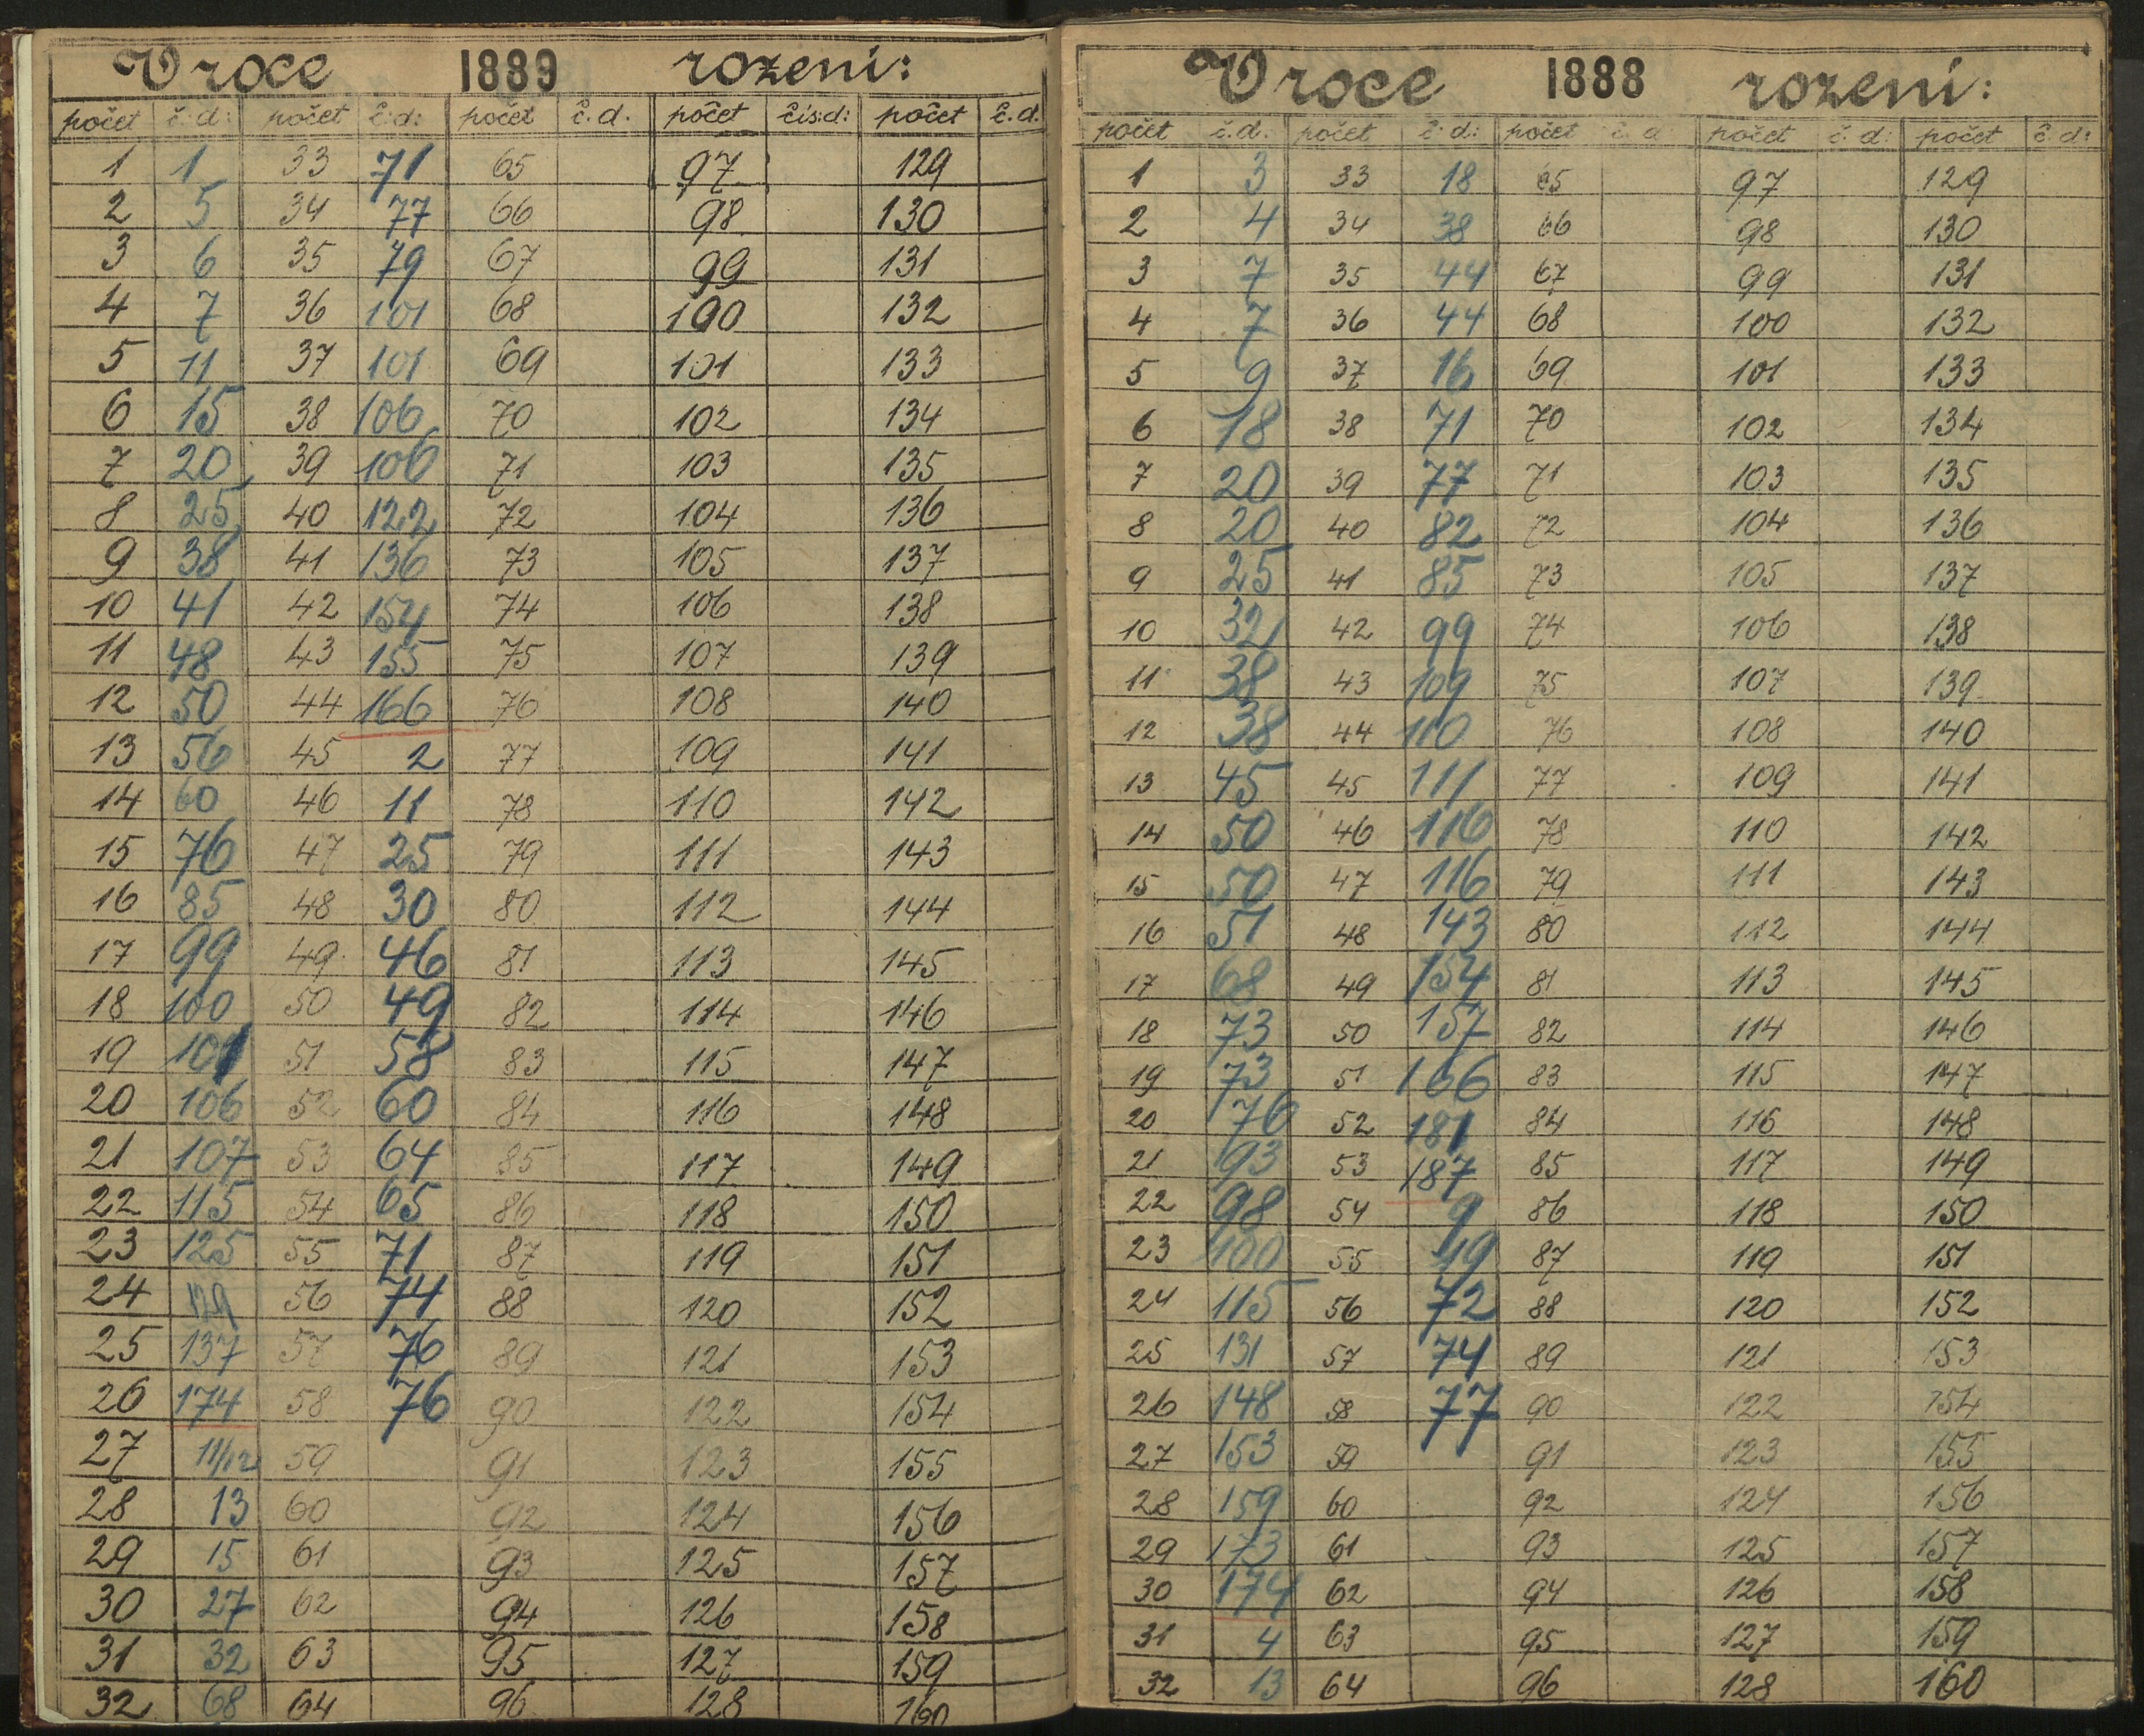 V roce 1889 rozeni:
počet č:d: počet č:d: počet č.d. počet čís:d: počet č.d.
1 1 33 71 65 97 129
2 5 34 77 66 98 130
3 6 35 79 67 99 131
4 7 36 101 68 100 132
5 11 37 101 69 101 133
6 15 38 106 70 102 134
7 20 39 106 71 103 135
8 25 40 122 72 104 136
9 38 41 136 73 105 137
10 41 42 154 74 106 138
11 48 43 155 75 107 139
12 50 44 166 76 108 140
13 56 45 2 77 109 141
14 60 46 11 78 110 142
15 76 47 25 79 111 143
16 85 48 30 80 112 144
17 99 49 46 81 113 145
18 100 50 49 82 114 146
19 101 51 58 83 115 147
20 106 52 60 84 116 148
21 107 53 64 85 117 149
22 115 54 65 86 118 150
23 125 55 71 87 119 151
24 129 56 74 88 120 152
25 137 57 76 89 121 153
26 174 58 76 90 122 154
27 11/12 59 91 123 155
28 13 60 92 124 156
29 15 61 93 125 157
30 27 62 94 126 158
31 32 63 95 127 159
32 68 64 96 128 160
V roce 1888 rozeni:
počet č.d. počet č:d: počet č.d. počet č.d: počet č.d:
1 3 33 18 65 97 129
2 4 34 38 66 98 130
3 7 35 44 67 99 131
4 7 36 44 68 100 132
5 9 37 16 69 101 133
6 18 38 71 70 102 134
7 20 39 77 71 103 135
8 20 40 82 72 104 136
9 25 41 85 73 105 137
10 32 42 99 74 106 138
11 38 43 109 75 107 139
12 38 44 110 76 108 140
13 45 45 111 77 109 141
14 50 46 116 78 110 142
15 50 47 116 79 111 143
16 51 48 143 80 112 144
17 68 49 154 81 113 145
18 73 50 157 82 114 146
19 73 51 166 83 115 147
20 76 52 181 84 116 148
21 93 53 187 85 117 149
22 98 54 9 86 118 150
23 100 55 49 87 119 151
24 115 56 72 88 120 152
25 131 57 74 89 121 153
26 148 58 77 90 122 154
27 153 59 91 123 155
28 159 60 92 124 156
29 173 61 93 125 157
30 174 62 94 126 158
31 4 63 95 127 159
32 13 64 96 128 160